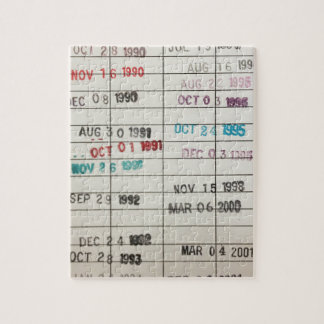 OCT 28 1990
NOV 16 1990
DEC 08 1990
AUG 30 1991
OCT 01 1991
NOV 26 1991
SEP 29 1992
DEC 24 1992
OCT 28 1993
AUG 16
AUG 22 1995
OCT 03 1995
OCT 24 1995
DEC 03 1995
NOV 15 1998
MAR 06 2000
MAR 04 2001